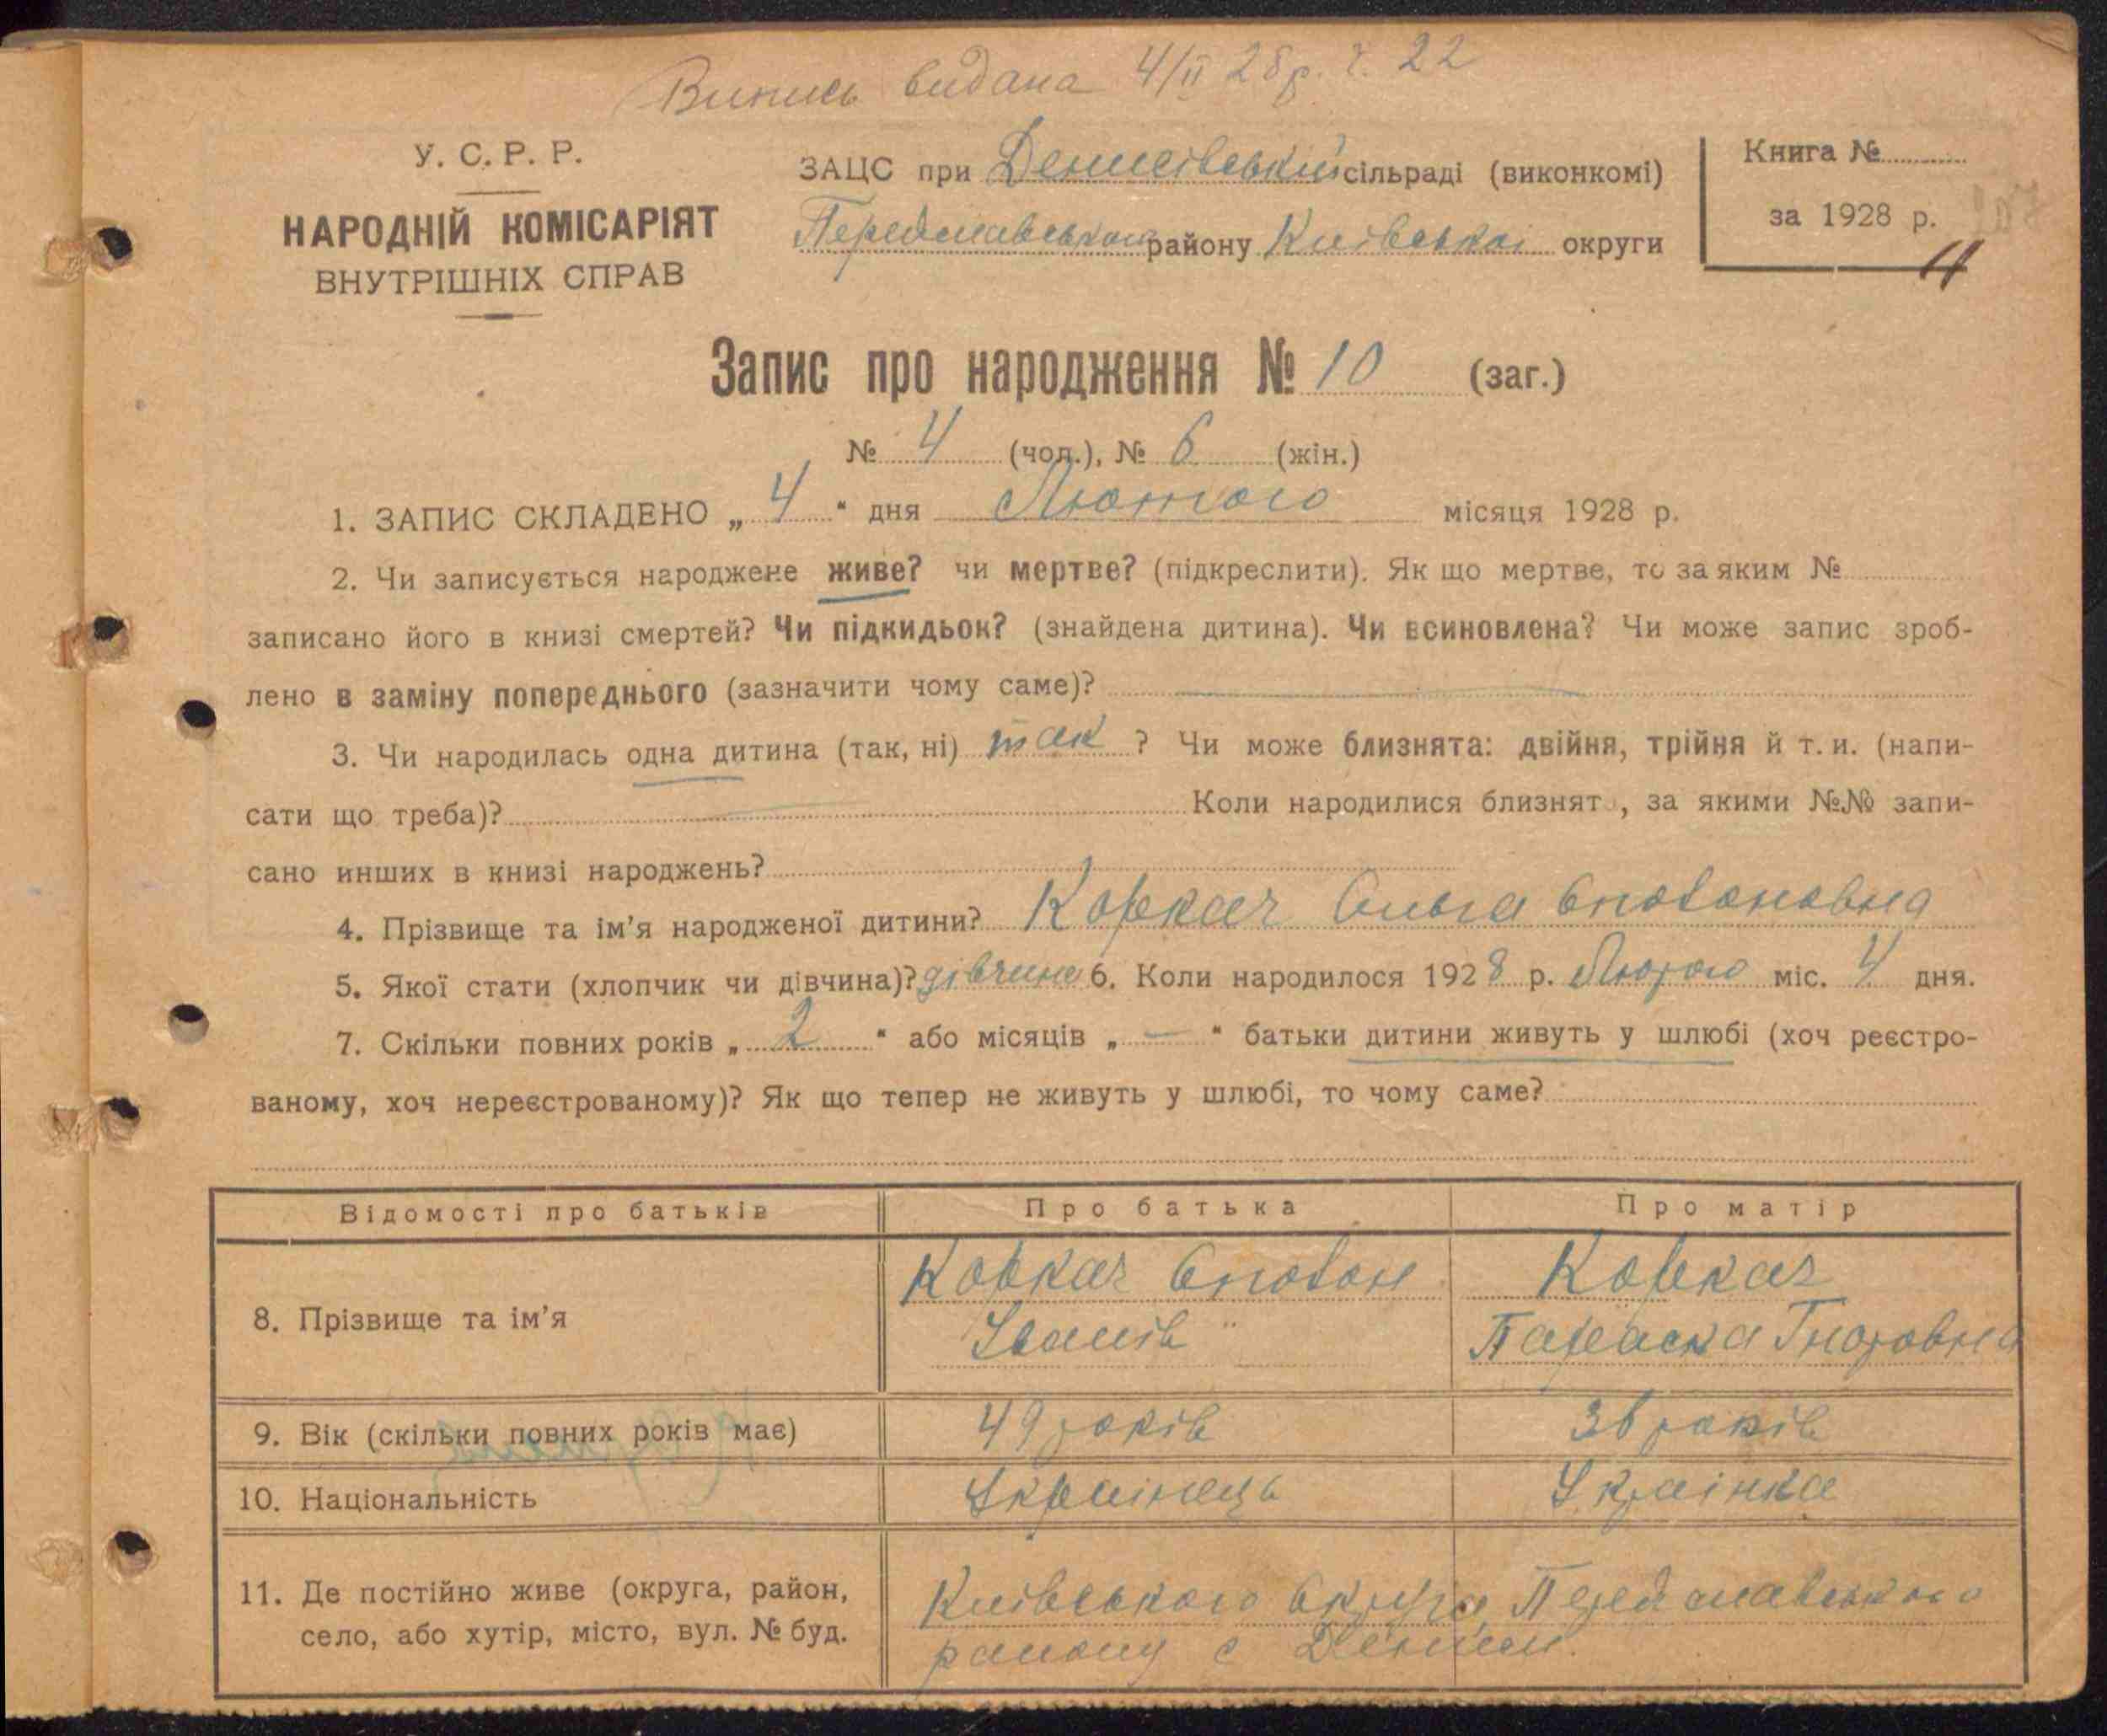 Випись видана 4/ІІ 28р. ч. 22
У. С. Р. Р.
НАРОДНІЙ КОМІСАРІЯТ
ВНУТРІШНІХ СПРАВ
ЗАЦС при Денисівській сільраді (виконкомі)
Переяславського району Київської округи
Книга №
за 1928 р.
4
Запис про народження № 10 (заг.)
№ 4 (чол.), № 6 (жін.)
1. ЗАПИС СКЛАДЕНО „ 4 “ дня Лютого місяця 1928 р.
2. Чи записується народжене живе? чи мертве? (підкреслити). Як що мертве, то за яким №
записано його в книзі смертей? Чи підкидьок? (знайдена дитина). Чи всиновлена? Чи може запис зроб-
лено в заміну попереднього (зазначити чому саме)?
3. Чи народилась одна дитина (так, ні) так ? Чи може близнята: двійня, трійня й т. и. (напи-
сати що треба)? Коли народилися близнят , за якими №№ запи-
сано инших в книзі народжень?
4. Прізвище та ім'я народженої дитини? Коркач Ольга
5. Якої стати (хлопчик чи дівчина)? дівчина 6. Коли народилося 1928 р. Лютого міс. 4 дня.
7. Скільки повних років „ 2 “ або місяців „ — “ батьки дитини живуть у шлюбі (хоч реєстро-
ваному, хоч нереєстрованому)? Як що тепер не живуть у шлюбі, то чому саме?
Відомості про батьків Про батька Про матір
8. Прізвище та ім'я Коркач Коркач
Іванів Параска
9. Вік (скільки повних років має) 49 років 36 років
10. Національність Українець Українка
11. Де постійно живе (округа, район,
село, або хутір, місто, вул. № буд.
Київського Округа, Переяславського
району с Дениси.